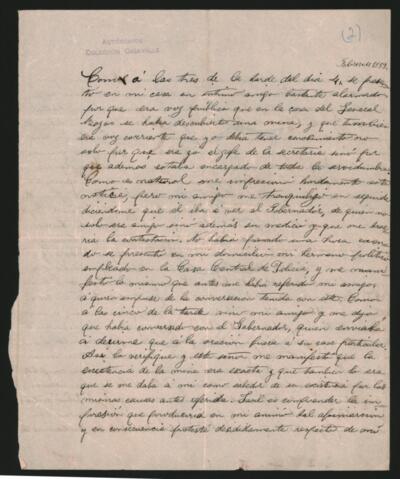 AUTÓGRAFOS
COLECCION CASAVALLE
(2)
Febrero 4 1859.
Como á las tres de la tarde del dia 4, se presen
tó en mi casa un íntimo amigo bastante alarmado
por que era voz pública que en la casa del
se habia descubierto una mina, y que tambien
era voz corriente que yo debia tener conocimiento no
solo por que era yo el jefe de la secretaria sinó por
que ademas estaba encargado de toda la servidumbre.
Como es natural me impresionó hondamente esta
noticia, pero mi amigo me tranquilizó en seguida
diciendome que el iba á ver al Gobernador, de quien no
solo era amigo sinó ademas su medico y que me trae
ria la contestacion. No habia pasado una hora cuan
do se presentó en mi domicilio mi hermano politico
empleado en la Casa Central de Policia, y me mani
festó lo mismo que antes me habia referido mi amigo
á quien impuse de la conversacion tenida con este. Como
á las cinco de la tarde vino mi amigo y me dijo
que habia conversado con el Gobernador, quien enviaba
á decirme que á la oracion fuese á su casa particular.
Asi lo verifiqué y este señor me manifestó que la
existencia de la mina era exacta y que tambien lo era
que se me daba á mi como sabedor de su existencia por las
mismas causas antes referidas. Facil es comprender la im
presion que produciria en mi animo tal aseveracion
y en consecuencia protesté decididamente respecto de mi